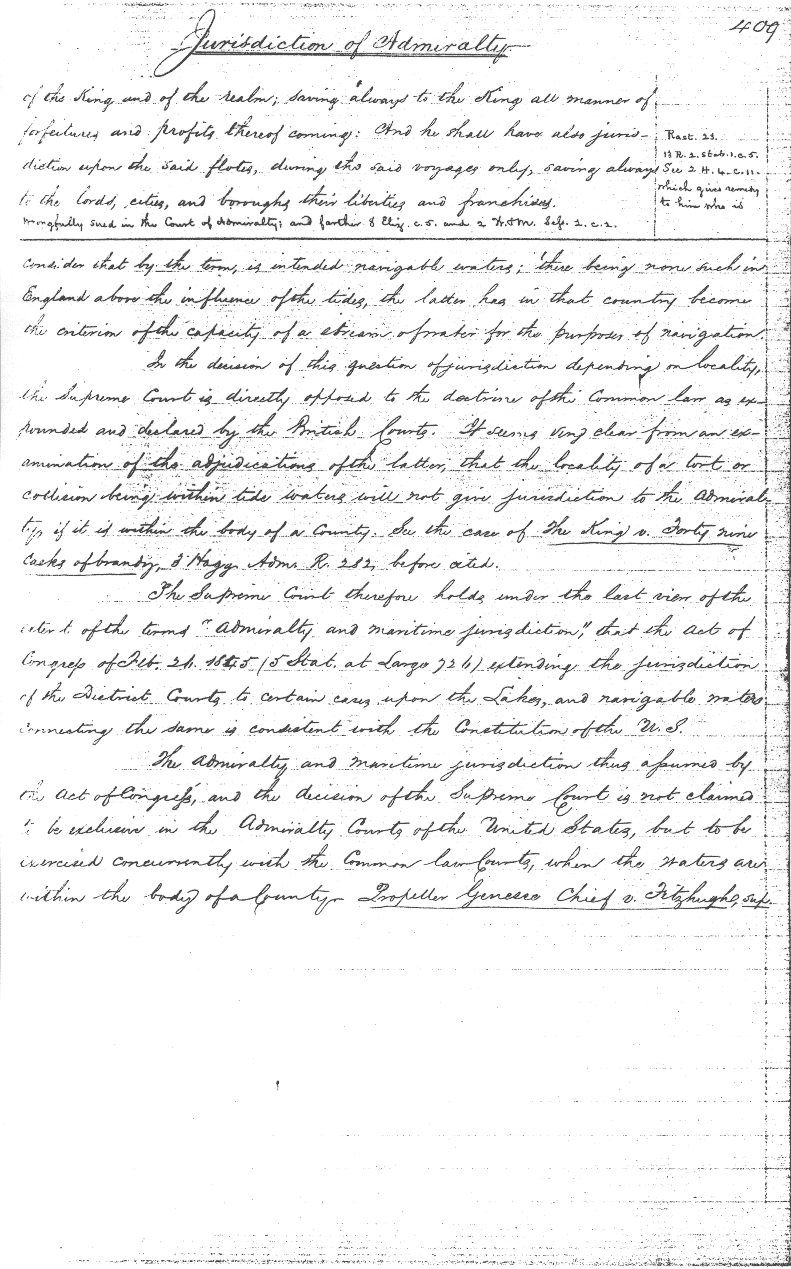 409
Jurisdiction of Admiralty
of the King and of the realm; saving always to the King all manner of
forfeitures and profits thereof coming: And he shall have also juris-
diction upon the said flotes, during the said voyages only, saving always
to the lords, cities, and boroughs their liberties and franchises.
wrongfully sued in the Court of Admiralty; and farther 8 Eliz. c.5. and 2 W.&M. Sess. 2. c.2.
Rast. 23.
13 R. 2. Stat. 1. c. 5.
See 2 H. 4. c. 11.
which gives remedy
to him who is
consider that by the term, is intended navigable waters; there being none such in
England above the influence of the tides, the latter has in that country become
the criterion of the capacity of a stream of water for the purposes of navigation.
In the decision of this question of jurisdiction depending on locality,
the Supreme Court is directly opposed to the doctrine of the Common law as ex-
pounded and declared by the British Courts. It seems very clear from an ex-
amination of the adjudications of the latter, that the locality of a tort or
collision being within tide waters will not give jurisdiction to the Admiral-
ty, if it is within the body of a County. See the case of The King v. Forty nine
Casks of brandy, 3 Hagg. Adm. R. 282, before cited.
The Supreme Court therefore holds under the last view of the
extent of the terms "Admiralty and maritime jurisdiction", that the Act of
Congress of Feb. 26. 1845 (5 Stat. at Large 726) extending the jurisdiction
of the District Courts to certain cases upon the Lakes, and navigable waters
connecting the same is consistent with the Constitution of the U.S.
The Admiralty and maritime jurisdiction thus assumed by
the Act of Congress, and the decision of the Supreme Court is not claimed
to be exclusive in the Admiralty Courts of the United States, but to be
exercised concurrently with the Common law Courts, when the waters are
within the body of a County. Propeller Genesee Chief v. Fitzhugh, sup.